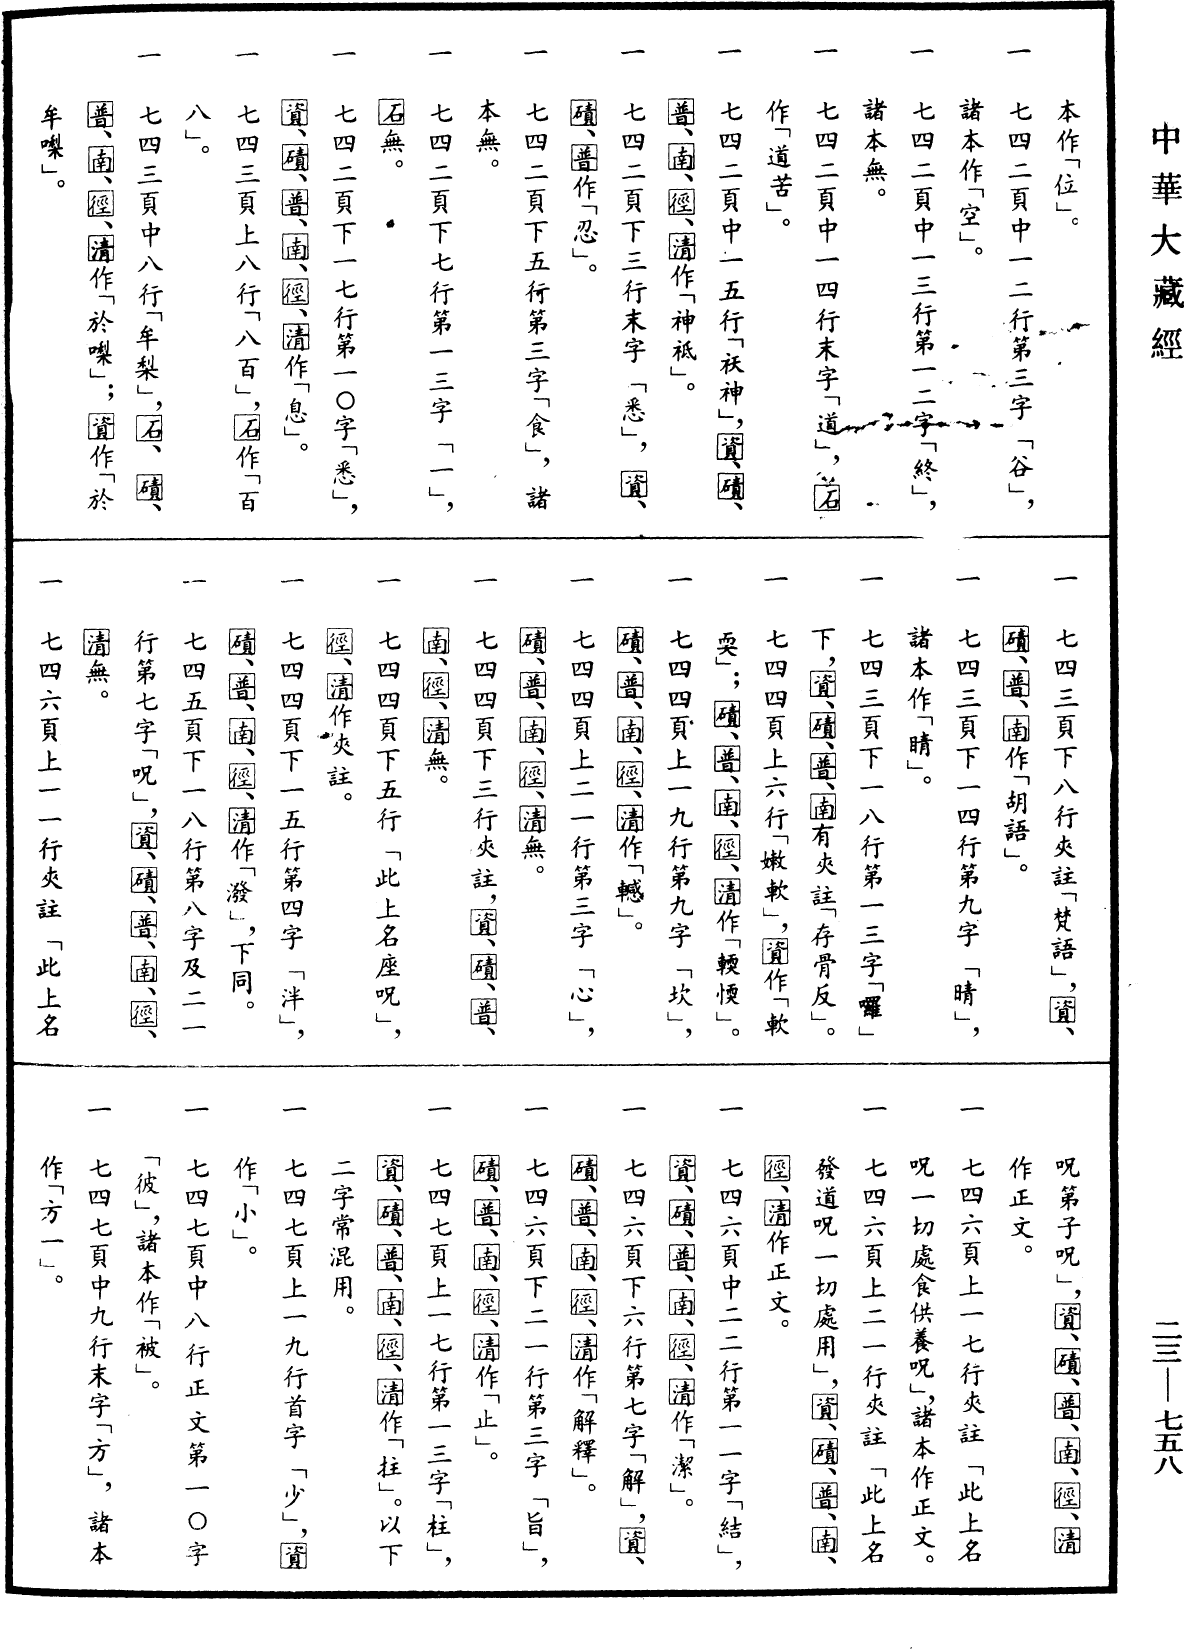 中華大藏經
本作「位」。
一　七四二頁中一二行第三字「谷」，
諸本作「空」。
一　七四二頁中一三行第一二字「終」，
諸本無。
一　七四二頁中一四行末字「道」，石
作「道苦」。
一　七四二頁中一五行「袄神」，資、磧、
普、南、徑、清作「神祇」。
一　七四二頁下三行末字「悉」，資、
磧、普作「忍」。
一　七四二頁下五行第三字「食」，諸
本無。
一　七四二頁下七行第一三字「一」，
石無。
一　七四二頁下一七行第一〇字「悉」，
資、磧、普、南、徑、清作「息」。
一　七四三頁上八行「八百」，石作「百
八」。
一　七四三頁中八行「牟梨」，石、磧、
普、南、徑、清作「於㗚」；資作「於
牟㗚」。
一　七四三頁下八行夾註「梵語」，資、
磧、普、南作「胡語」。
一　七四三頁下一四行第九字「晴」，
諸本作「睛」。
一　七四三頁下一八行第一三字「囉」
下，資、磧、普、南有夾註「存骨反」。
一　七四四頁上六行「嫩軟」，資作「軟
耎」；磧、普、南、徑、清作「輭愞」。
一　七四四頁上一九行第九字「坎」，
磧、普、南、徑、清作「轗」。
一　七四四頁上二一行第三字「心」，
磧、普、南、徑、清無。
一　七四四頁下三行夾註，資、磧、普、
南、徑、清無。
一　七四四頁下五行「此上名座呪」，
徑、清作夾註。
一　七四四頁下一五行第四字「泮」，
磧、普、南、徑、清作「潑」，下同。
一　七四五頁下一八行第八字及二一
行第七字「呪」，資、磧、普、南、徑、
清無。
一　七四六頁上一一行夾註「此上名
呪第子呪」，資、磧、普、南、徑、清
作正文。
一　七四六頁上一七行夾註「此上名
呪一切處食供養呪」，諸本作正文。
一　七四六頁上二一行夾註「此上名
發道呪一切處用」，資、磧、普、南、
徑、清作正文。
一　七四六頁中二二行第一一字「結」，
資、磧、普、南、徑、清作「潔」。
一　七四六頁下六行第七字「解」，資、
磧、普、南、徑、清作「解釋」。
一　七四六頁下二一行第三字「旨」，
磧、普、南、徑、清作「止」。
一　七四七頁上一七行第一三字「柱」，
資、磧、普、南、徑、清作「拄」。以下
二字常混用。
一　七四七頁上一九行首字「少」，資
作「小」。
一　七四七頁中八行正文第一〇字
「彼」，諸本作「被」。
一　七四七頁中九行末字「方」，諸本
作「方一」。
二三—七五八